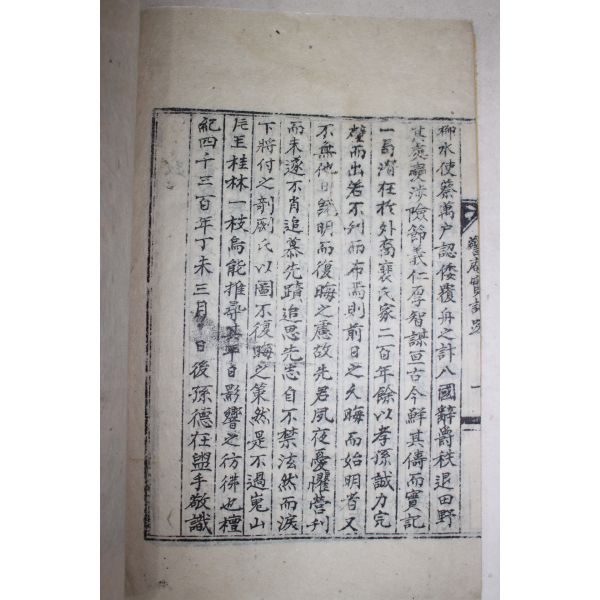 柳水使蔡萬戶認倭覆舟之計入國辭爵秩退田野
其處變涉險節義仁孝智謀亘古今鮮其儔而實記
一局潛在於外裔裵氏家二百年餘以孝孫誠力完
璧而出若不刊而布焉則前日之久晦而始明者又
不無他日旣明而復晦之慮故先君夙夜憂懼營刊
而未遂不肖追慕先蹟追思先志自不禁泫然而淚
下將付之剞劂氏以圖不復晦之策然是不過崑山
片玉桂林一枝烏能推尋其平日影響之彷彿也檀
紀四千三百年丁未三月 日後孫德在盥手敬識
菴實記 一